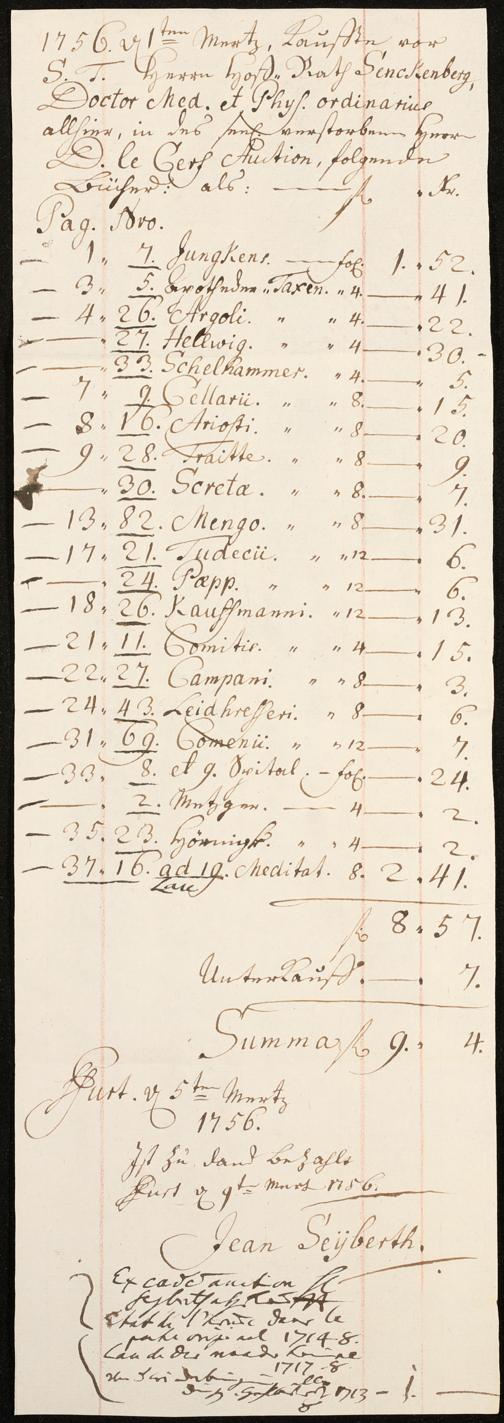 1756. d 1ten Mertz, Kauffte vor
S. T. Herrn Hoff-Rath Senckenberg,
Doctor Med. et Phys. ordinarius
allhier, in des seel. verstorbenen Herrn
D. le Cerf Auction, folgende
Bücher: als: — fl. Xr.
Pag. Nro.
— 1. 7. Jungkens. — fol. 1. 52.
— 3. 5. Taxen. 4. — 41.
— 4. 26. Argoli. " " 4. — 22.
— 27. Hellwig. " " 4 — 30.
— 33. Schelhammer. " 4. — 5.
— 7 9. Cellarii. " " 8. — 15.
— 8. 16. Ariosti. " " 8 — 20.
— 9. 28. Traitte. " " 8 — 9.
— 30. Scretæ. " " 8. — 7.
— 13. 82. Mengo. " " 8 — 31.
— 17. 21. Tudecii. " " 12 — 6.
— 24. Pæpp. " " 12 — 6.
— 18. 26. Kauffmanni. " 12 — 13.
— 21. 11. Comitis. " " 4 — 15.
— 22. 27. Campani. " " 8 — 3.
— 24. 43. Leidhresseri. " 8 — 6.
— 31. 69. Comenii. " " 12 — 7.
— 33. 8. et 9. Spital. — fol. — 24.
— 2. Metzger. — 4 — 2.
— 35. 23. Hörnigk. " 4 — 2.
— 37. 16. ad 19. Meditat. 8. 2. 41.
fl. 8. 57.
Unterkauff. — 7.
Summa fl. 9. 4.
Ffurt. d 5ten Mertz
1756.
Ist zu danck bezahlt
Ffurt d 9t Mertz 1756.
Jean Seyberth.
Ex auction
dans le
original 1714. 8.
1717. 8
1713 — 1. —
8